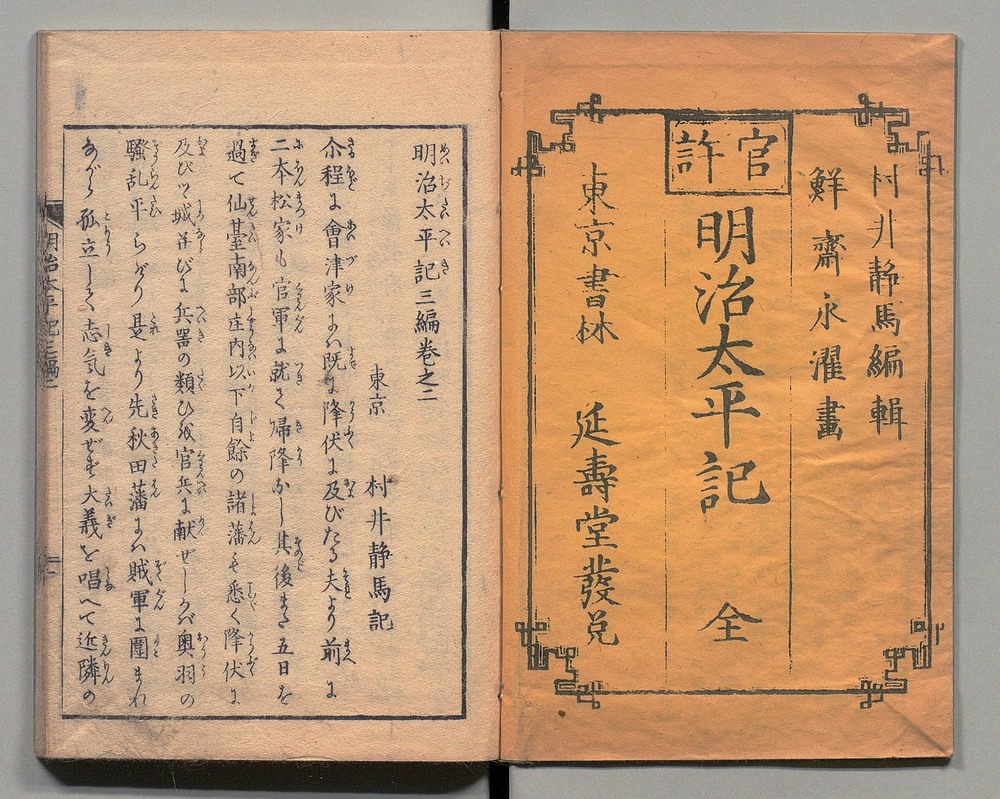 村井静馬編輯
鮮齋永濯畫
官許
明治太平記 全
東京書林 延壽堂發兌
明治太平記三編巻之二
東京 村井静馬記
余程に會津家にハ既に降伏に及びたる夫より前に
二本松家も官軍に就て帰降なし其後また五日を
過て仙臺南部庄内以下自餘の諸藩も悉く降伏に
及びて城并びに兵器の類ひを官兵に献ぜしかバ奥羽の
騒乱平らげり是より先秋田藩にハ賊軍に圍まれ
ながら孤立して志気を変ぜず大義を唱へて近隣の
明治太平記三編二